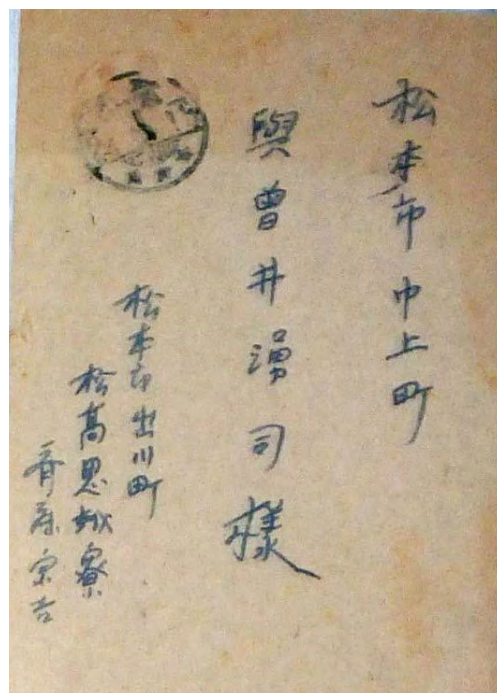 松本市中上町
與曽井湧司様
松本市出川町
松高思誠寮
斉藤宗吉